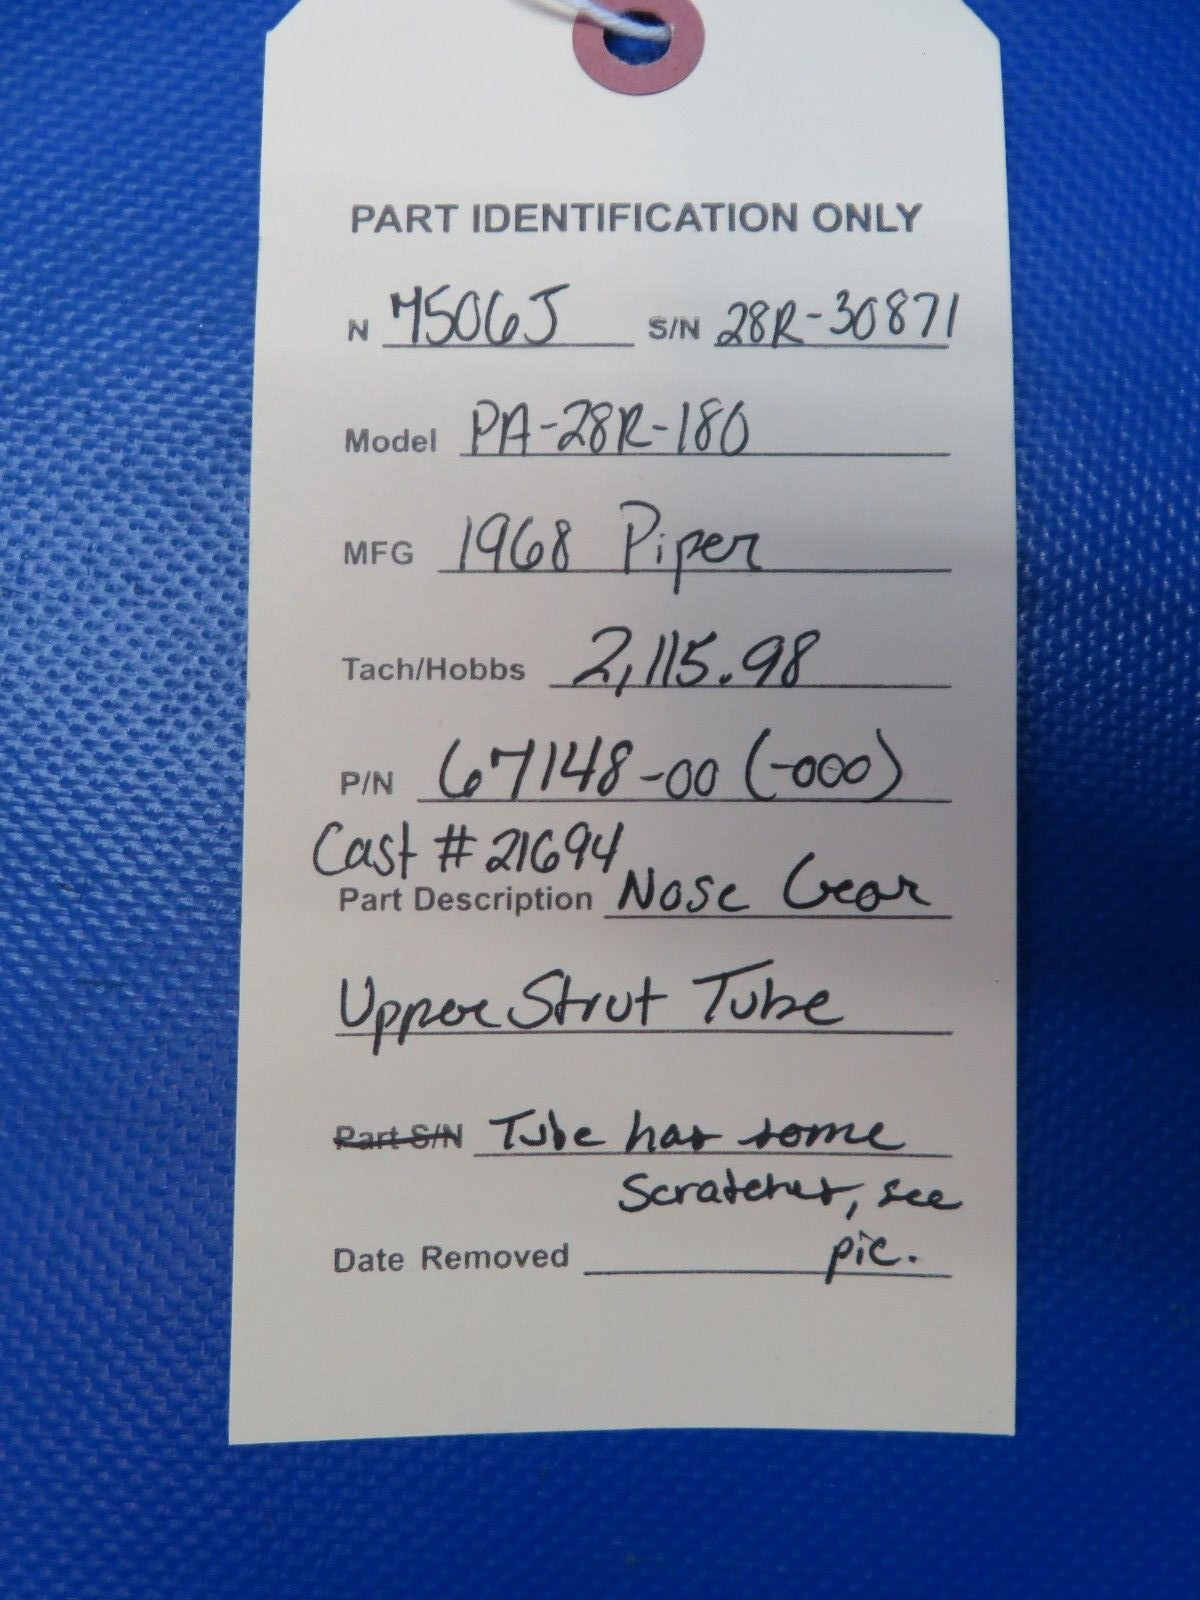 PART IDENTIFICATION ONLY
N 7506J S/N 28R-30871
Model PA-28R-180
MFG 1968 Piper
Tach/Hobbs 2,115.98
P/N 67148-00 (-000)
Cast # 21694
Part Description Nose Gear
Upper Strut Tube
Part S/N Tube has some
Scratches, see
pic.
Date Removed